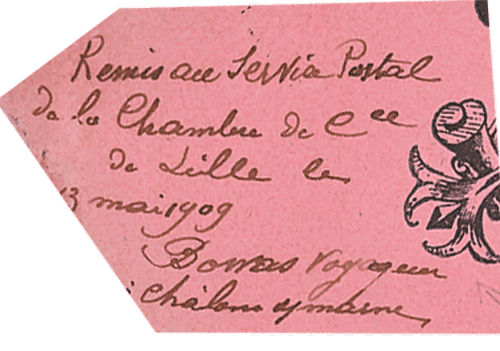 Remis au Service Postal
de la Chambre de Cce
de Lille le
13 mai 1909
Voyageur
Châlons s/ marne